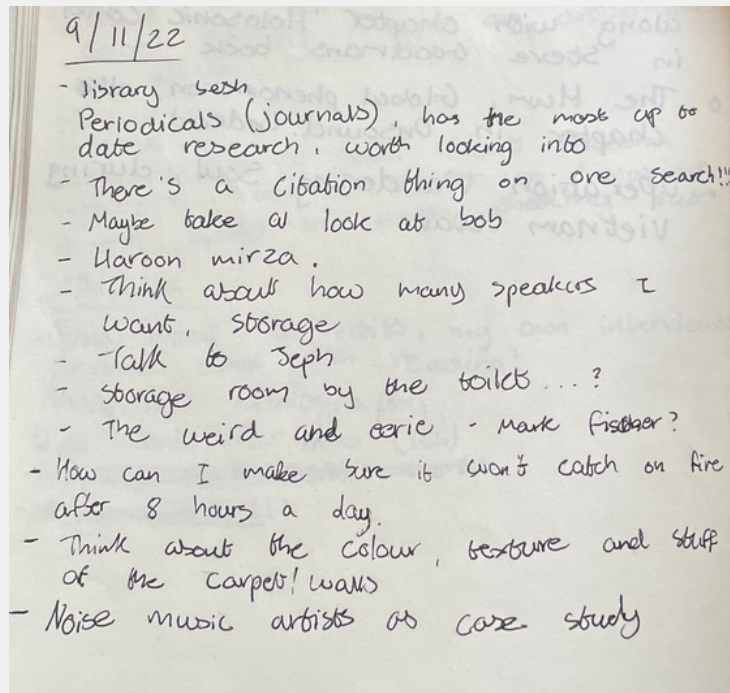 9/11/22
- library sesh
Periodicals (journals), has the most up to
date research, worth looking into
- There's a citation thing on one search!!
- Maybe take a look at bob
- Haroon mirza.
- Think about how many speakers I
want, storage
- Talk to Jeph
- storage room by the toilets...?
- The weird and eerie - Mark Fischer?
- How can I make sure it won't catch on fire
after 8 hours a day.
- Think about the colour, texture and stuff
of the carpet! walls
- Noise music artists as case study